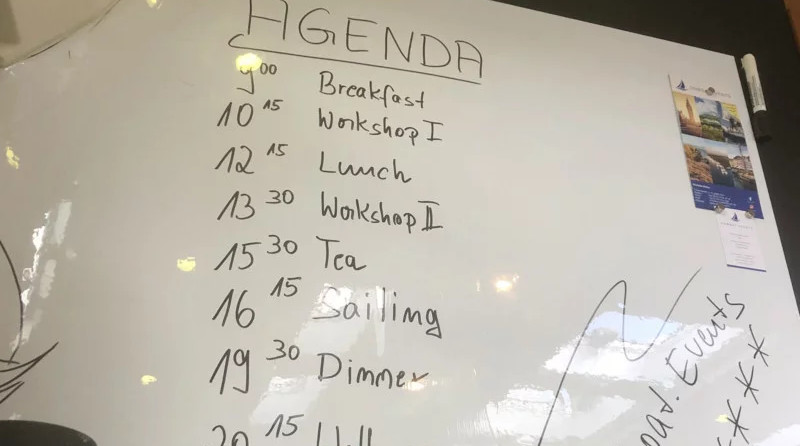 AGENDA
9⁰⁰ Breakfast
10¹⁵ Workshop I
12¹⁵ Lunch
13³⁰ Workshop II
15³⁰ Tea
16¹⁵ Sailing
19³⁰ Dinner
20¹⁵
Events
****